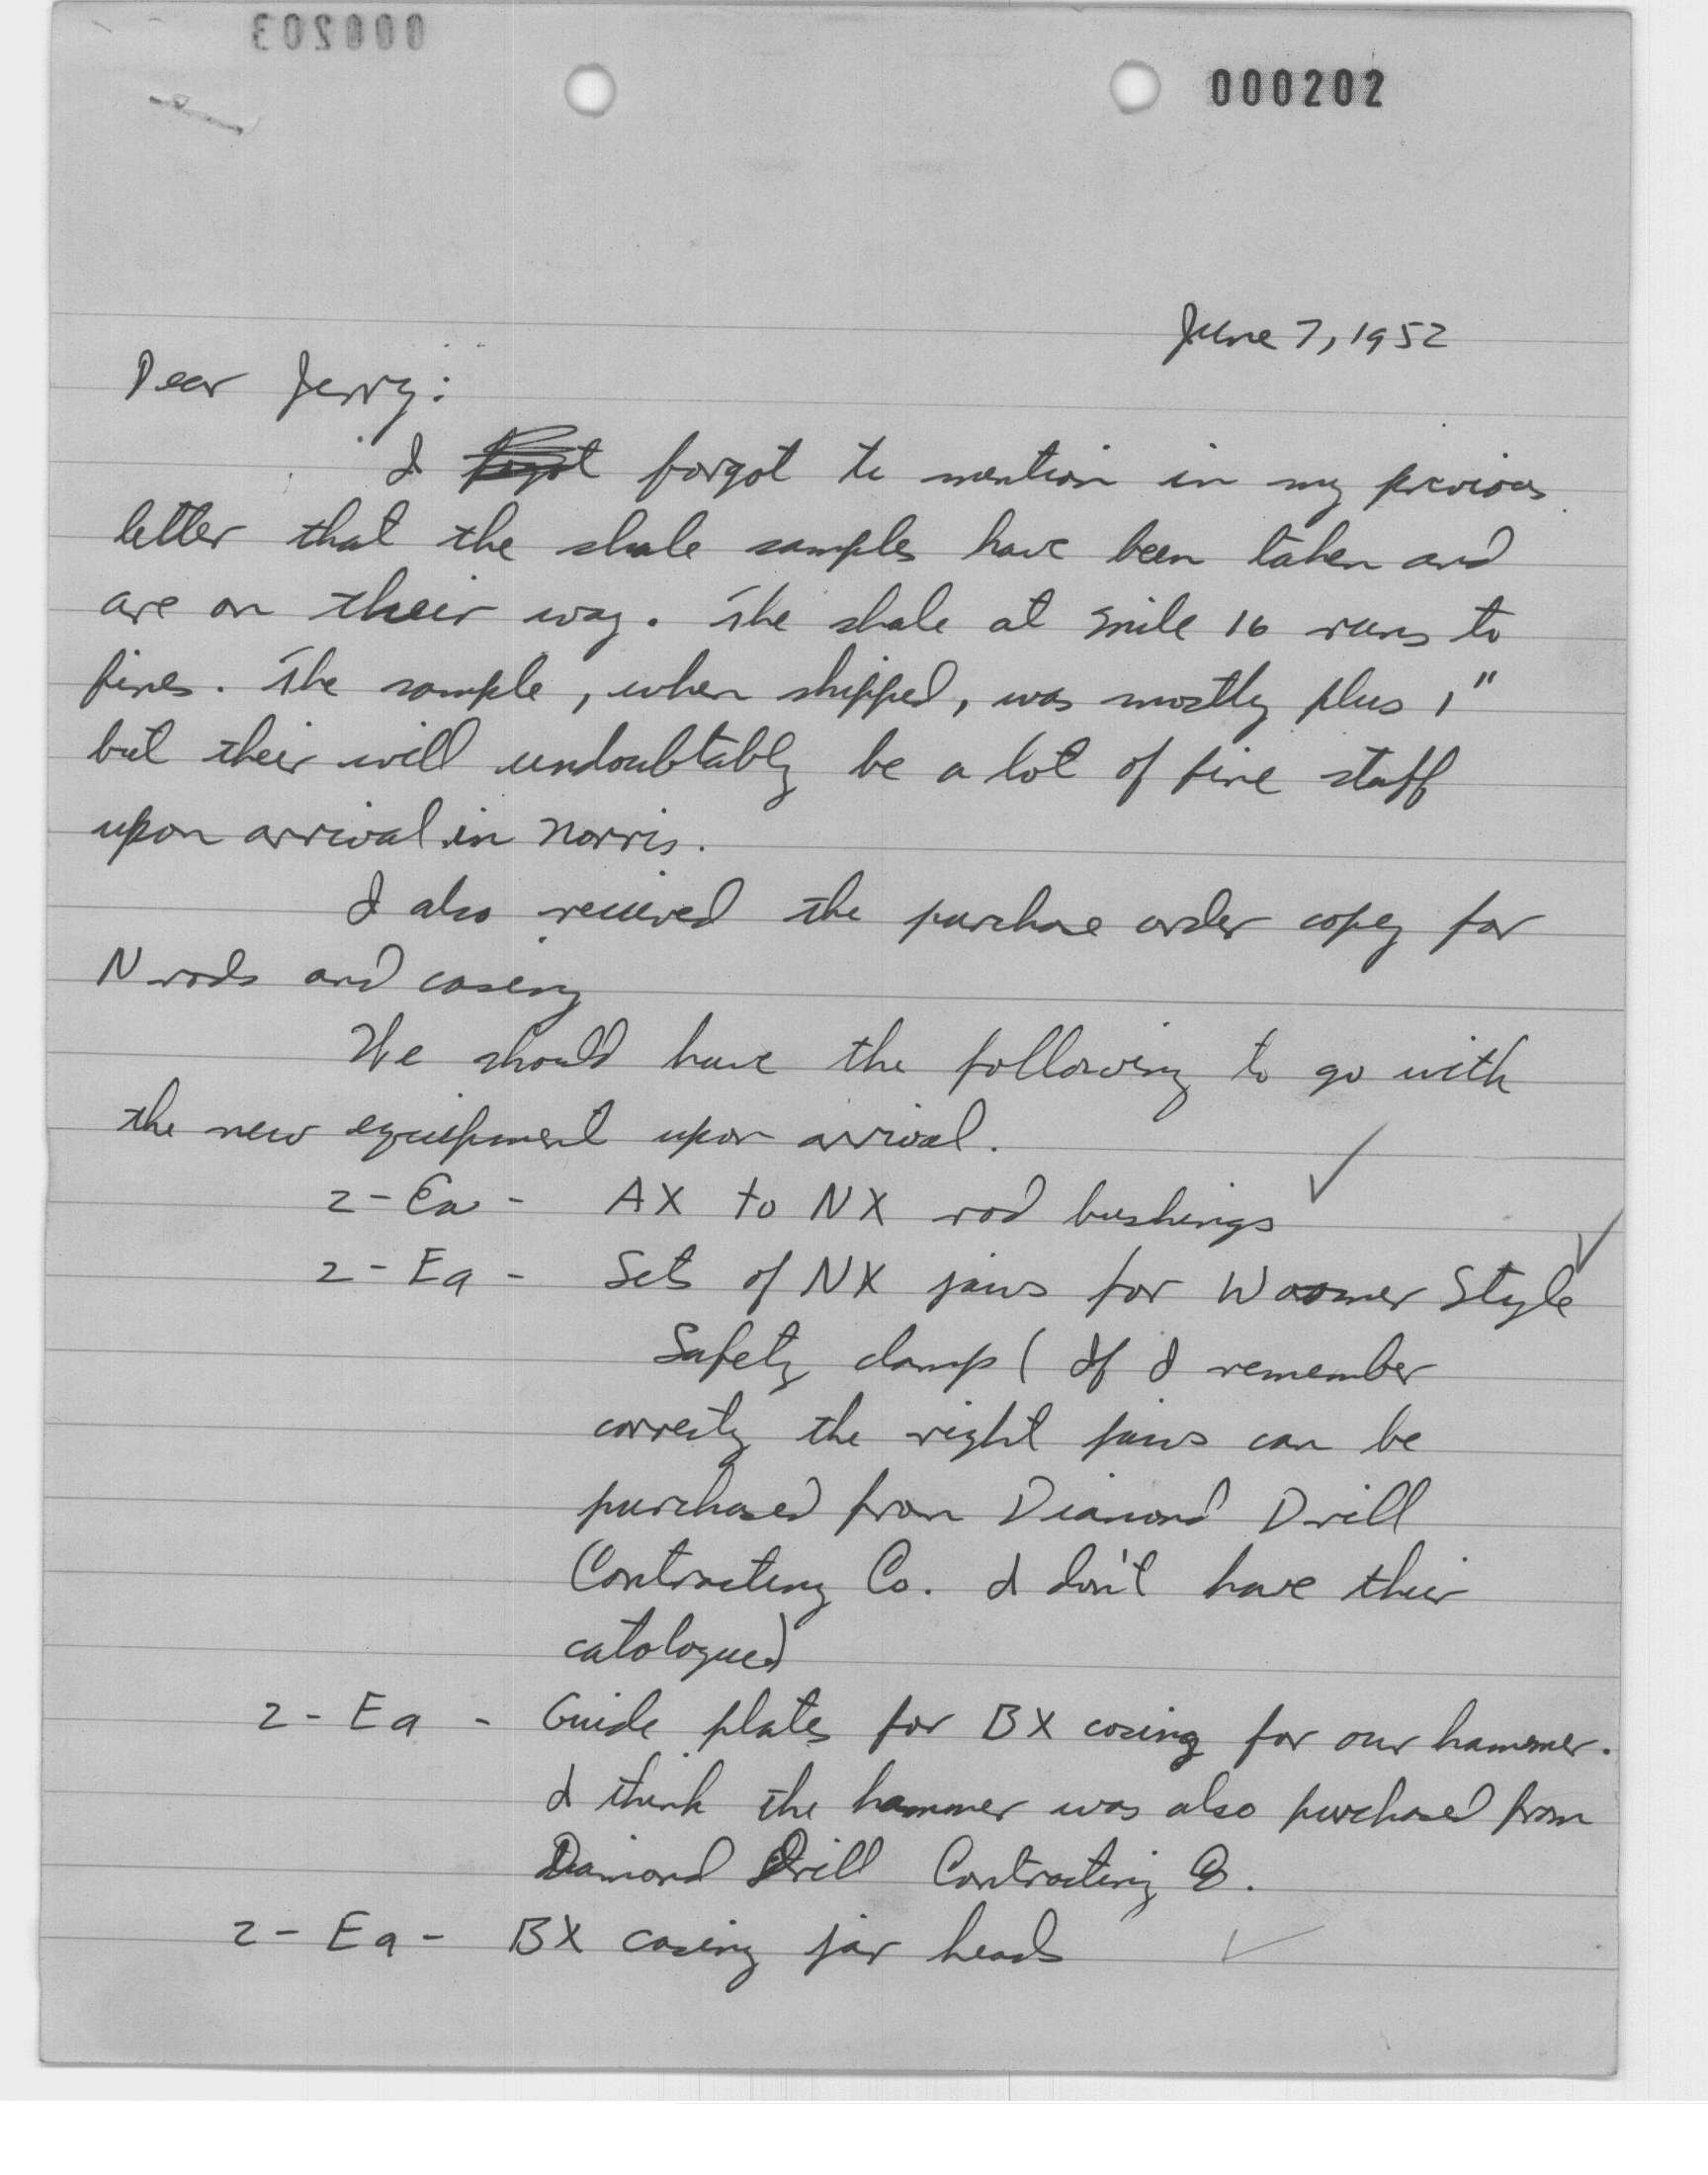 000203
000202
June 7, 1952
Dear Jerry:
I forgot to mention in my previous
letter that the shale samples have been taken and
are on their way. The shale at mile 16 runs to
fines. The sample, when shipped, was mostly plus 1"
but their will undoubtably be a lot of fine stuff
upon arrival in Norris.
I also received the purchase order copy for
N rods and casing
We should have the following to go with
the new equipment upon arrival.
2 - Ea - AX to NX rod bushings ✓
2 - Ea - Sets of NX jaws for Woomer Style ✓
Safety clamp ( If I remember
correctly the right jaws can be
purchased from Diamond Drill
Contracting Co. I don't have their
catologue)
2 - Ea - Guide plates for BX casing for our hammer.
I think the hammer was also purchased from
Diamond Drill Contracting Co.
2 - Ea - BX casing jar heads ✓